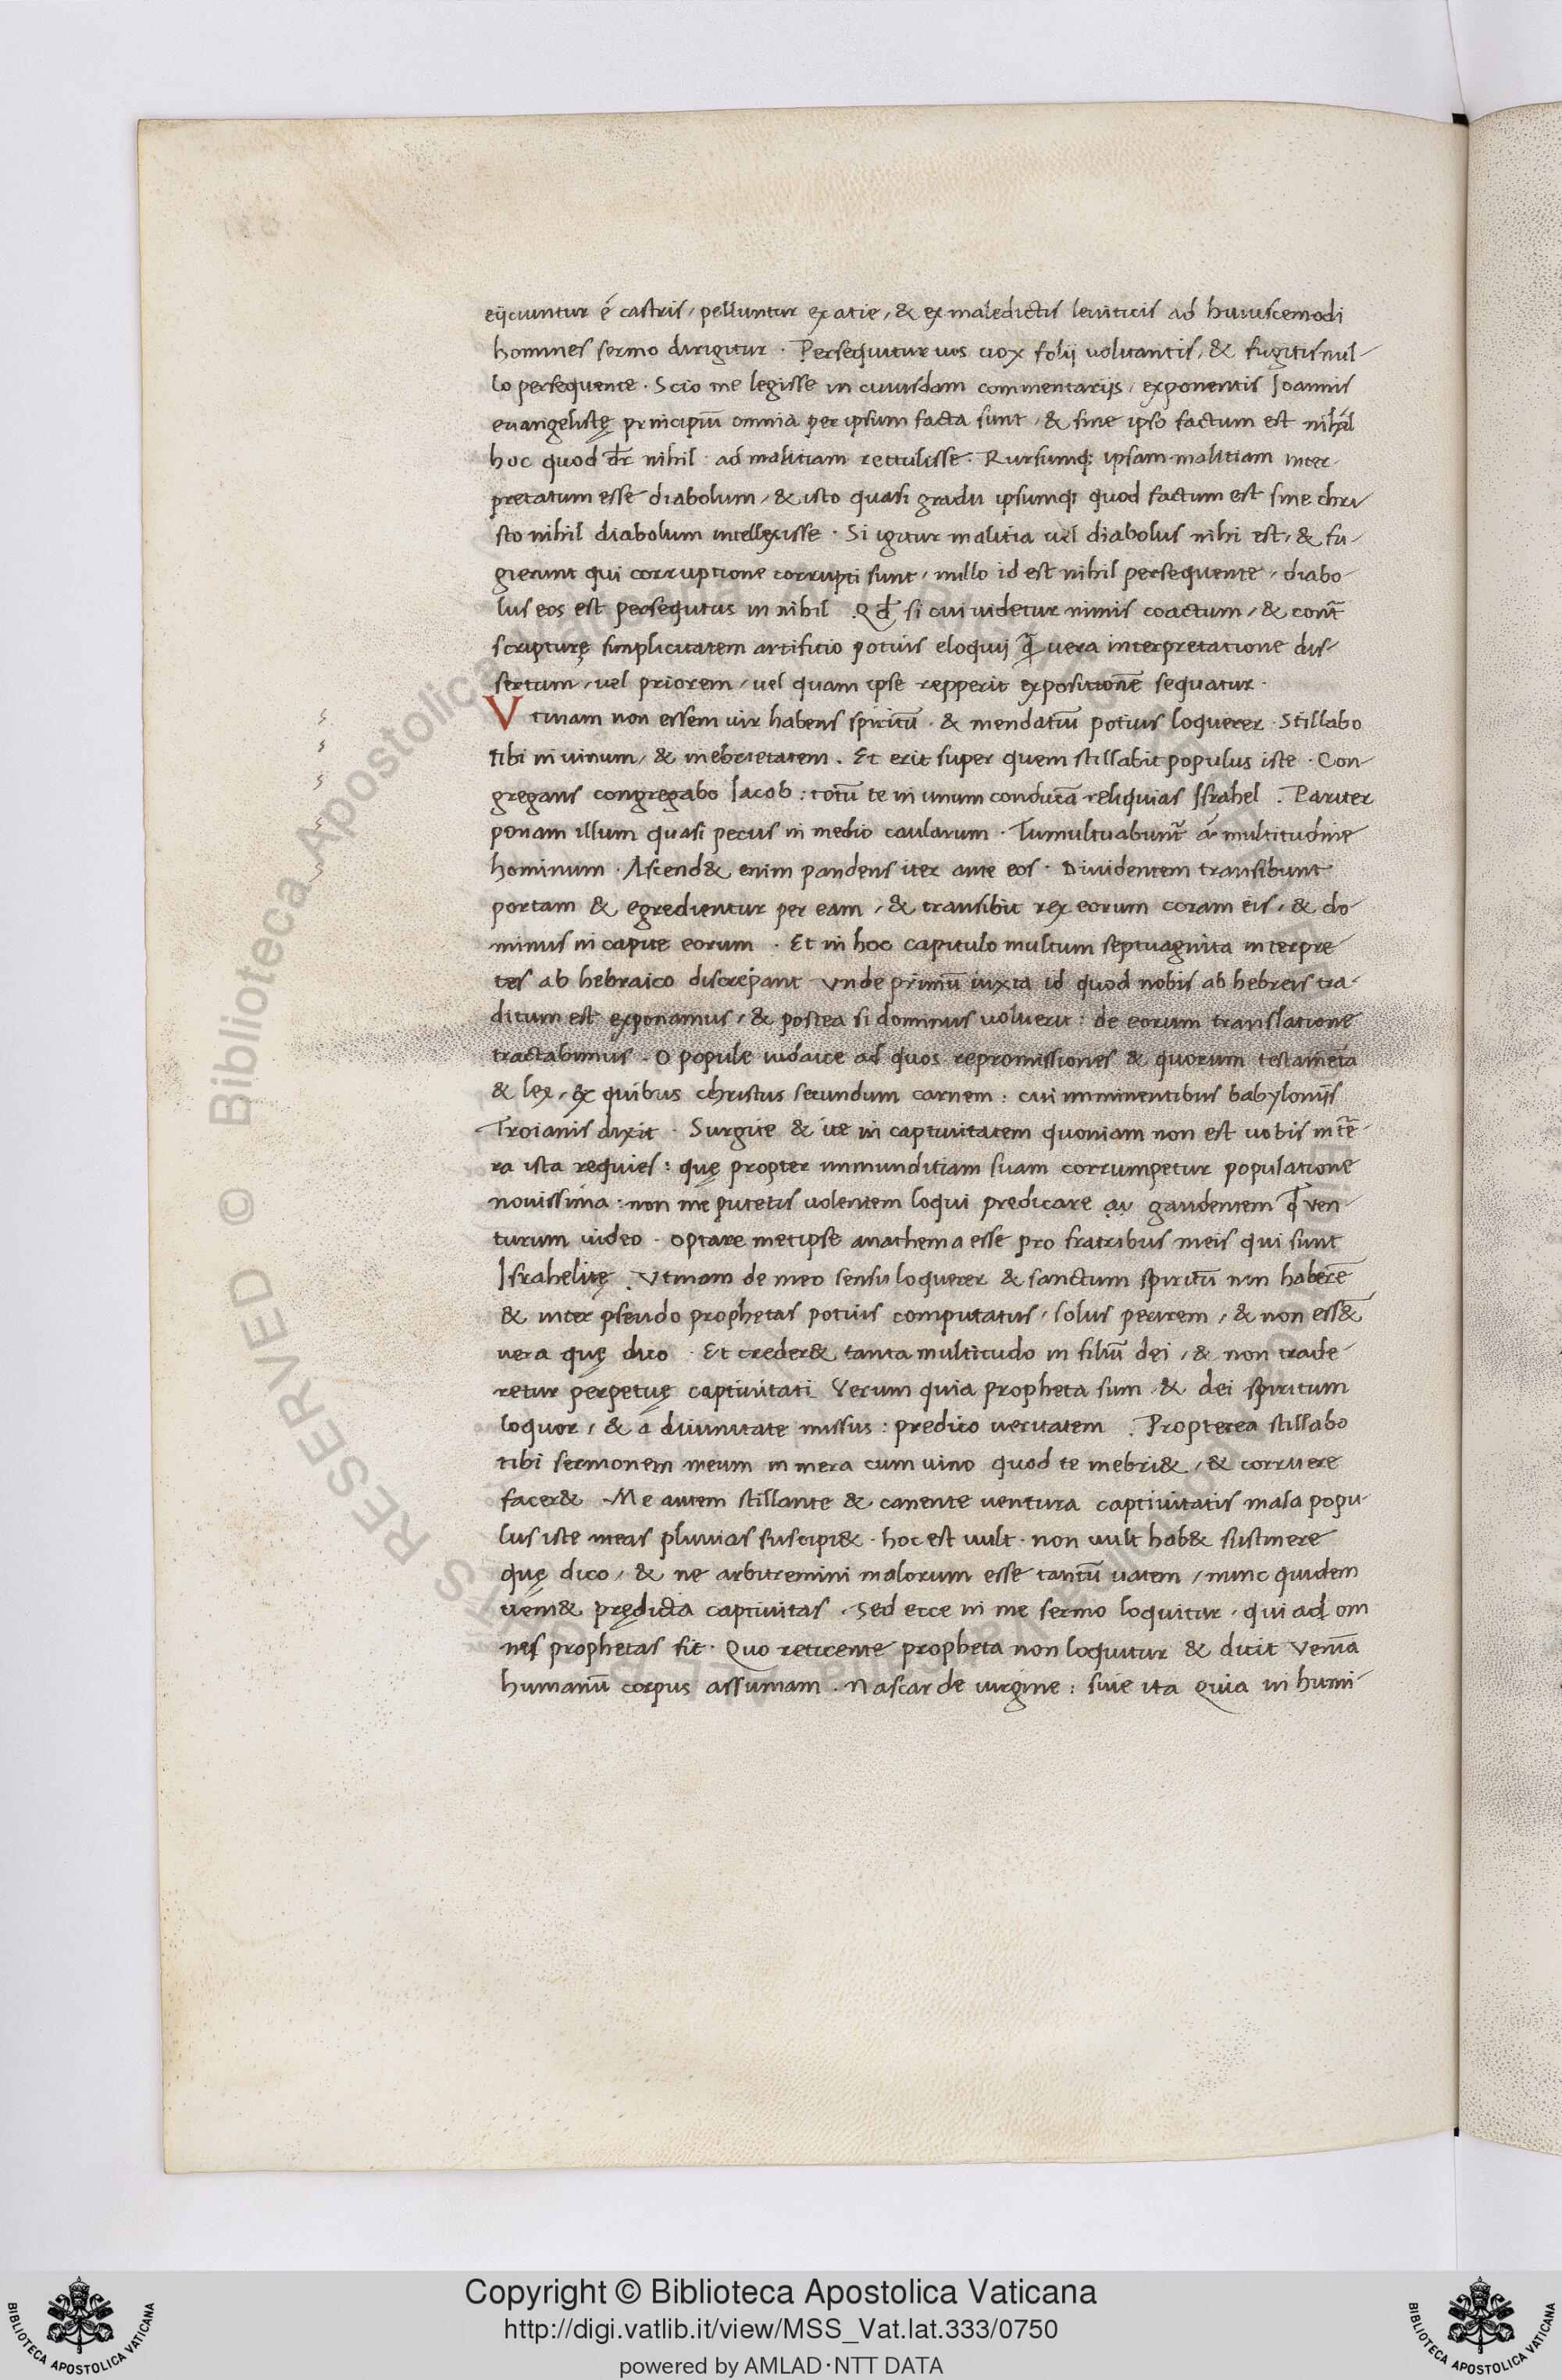 eijciuntur é castris, pelluntur ex acie, & ex maledictis leuiticis ad huiuscemodi
homines sermo dirigitur. Persequitur uos uox folij uolitantis, & fugitis nul-
lo persequente. Scio me legisse in cuiusdam commentarijs, exponentis Ioannis
euangelistę principiū omnia per ipsum facta sunt, & sine ipso factum est nihil
hoc quod dr̄ nihil: ad malitiam rettulisse. Rursumq; ipsam malitiam inter-
pretatum esse diabolum, & isto quasi gradu ipsumq; quod factum est sine chri-
sto nihil diabolum intellexisse. Si igitur malitia uel diabolus nihi est, & fu-
gierunt qui corruptione corrupti sunt, nullo id est nihil persequente, diabo-
lus eos est persequtus in nihil. Qd̄ si cui uidetur nimis coactum, & cont̄
scripturę simplicitatem artificio potius eloquij q̄ uera interpretatione dis-
sertum, uel priorem, uel quam ipse repperit expositionē sequatur.
Vtinam non essem uir habens spiritū. & mendatiū potius loquerer. Stillabo
tibi in uinum, & in ebrietatem. Et erit super quem stillabit populus iste. Con-
gregans congregabo Iacob: totū te in unum conducā reliquias Israhel. Pariter
ponam illum quasi pecus in medio caularum. Tumultuabunt̄ á multitudine
hominum. Ascend& enim pandens iter ante eos. Diuidentem transibunt
portam & egredientur per eam, & transibit rex eorum coram eis, & do-
minus in capite eorum. Et in hoc capitulo multum septuaginta interpre-
tes ab hebraico discrepant Vnde primū iuxta id quod nobis ab hebreis tra-
ditum est exponamus, & postea si dominus uoluerit: de eorum translatione
tractabimus. O popule iudaice ad quos repromissiones & quorum testamēta
& lex, & ex quibus christus secundum carnem: cui imminentibus babyloniis
Troianis dixit. Surgite & ite in captiuitatem quoniam non est uobis in t̄e-
ra ista requies: quę propter immunditiam suam corrumpetur populatione
nouissima: non me putetis uolentem loqui predicare au gaudentem q̄ ven-
turum uideo. optare me ipse anathema esse pro fratribus meis qui sunt
Israhelitę. Vtinam de meo sensu loquerer & sanctum spiritū non haberē
& inter pseudo prophetas potius computatus, solus perirem, & non ess&
uera quę dico. Et creder& tanta multitudo in filiū dei, & non trade-
retur perpetuę captiuitati Verum quia propheta sum & dei spiritum
loquor, & á diuinitate missus: predico ueritatem. Propterea stillabo
tibi sermonem meum in mera cum uino quod te inebri&, & corruere
facer& Me autem stillante & canente uentura captiuitatis mala popu-
lus iste meas pluuias suscipi&. hoc est uult. non uult hab& sustinere
quę dico, & ne arbitremini malorum esse tantū uatem, nunc quidem
ueni& prędicta captiuitas. Sed ecce in me sermo loquitur, qui ad om
nes prophetas fit. Quo reticente propheta non loquitur & dicit Veniā
humanū corpus assumam. Nascar de uirgine: siue ita Quia in humi-
Copyright © Biblioteca Apostolica Vaticana
http://digi.vatlib.it/view/MSS_Vat.lat.333/0750
powered by AMLAD·NTT DATA